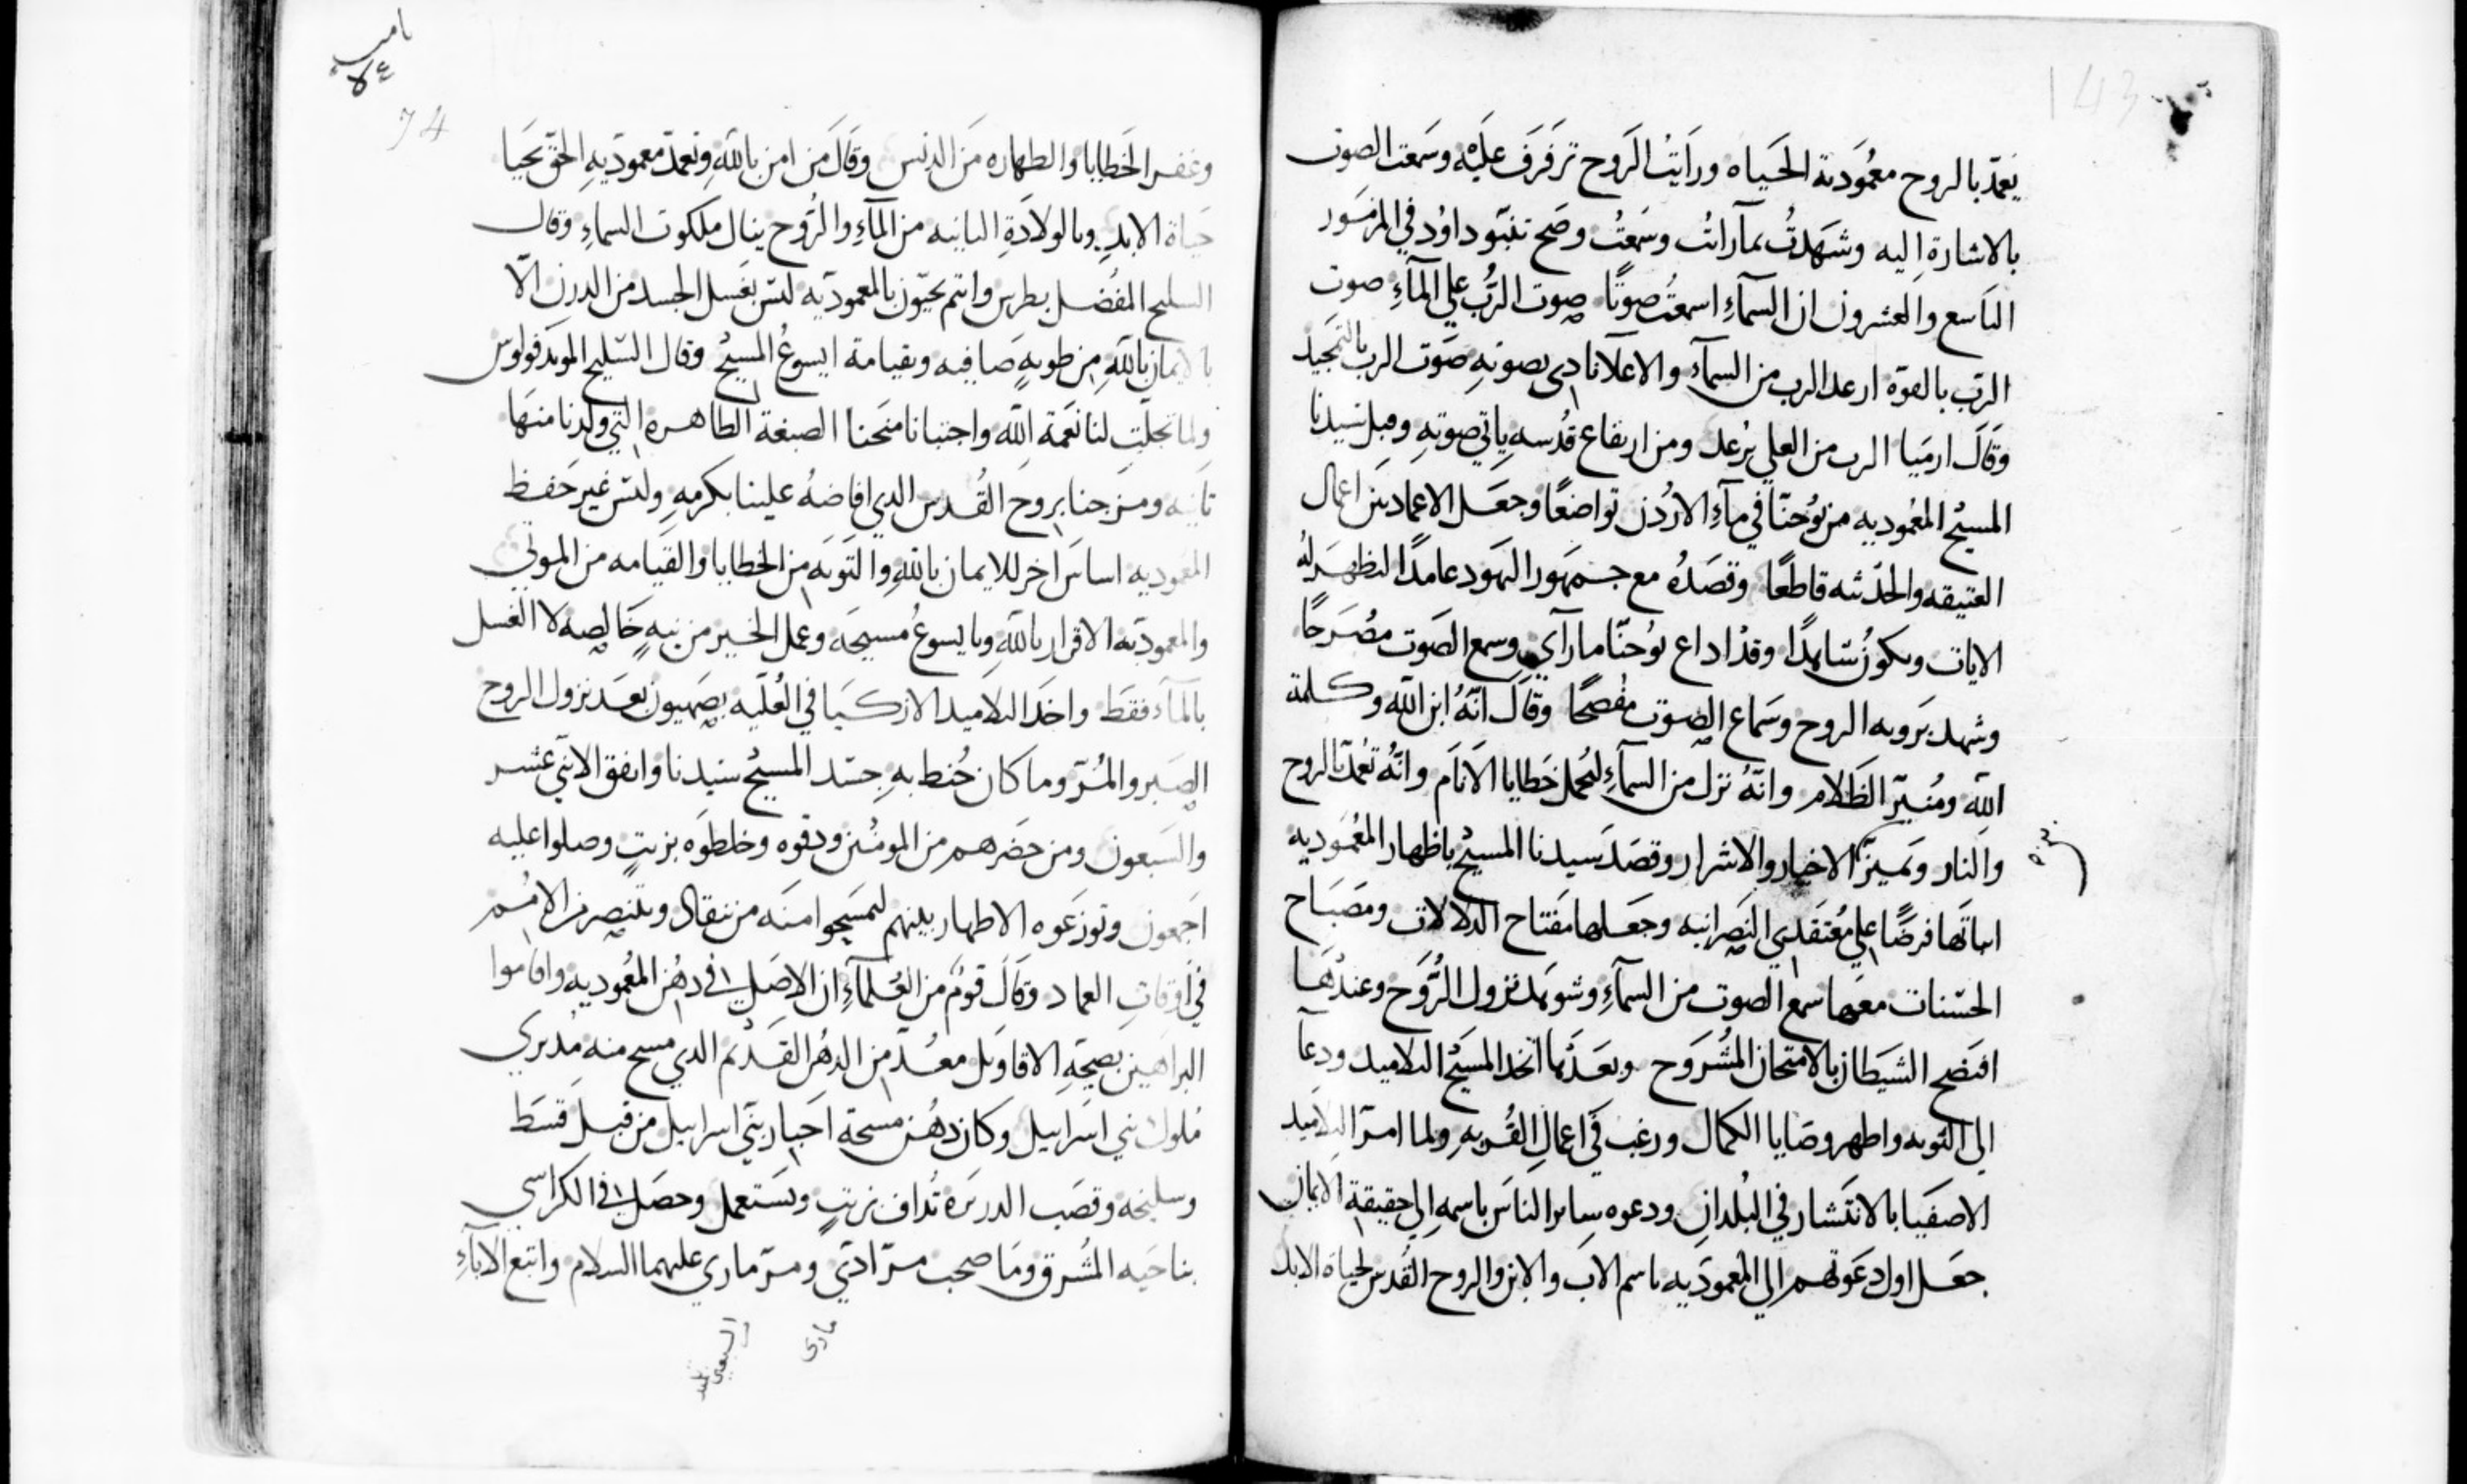 143
يعمد بالروح معمُودية الحَياه ورَايتُ الرَوح تَرفرَف علَيه وسَمعت الصوت
بالاشارة اِليه وشهَدتُ بمآ راتُ وسَمعتُ وصَح تنبّوِ داوُد في المزمَور
التاسع والعشرون ان السمآءِ اسمعتُ صوتًا صوت الرَّب علي المآءِ صوت
الرَب بالقوّه ارعد الرب من السمآءِ والاعلا نادي بصوتهِ صَوت الرب بالتمجيد
وَقالَ ارمَيا الرب من العلي يرعد ومن ارتفاع قدُسهِ ياتي صوتهِ وقبل سَيدنا
المسيح المعُموديه من يُوحنّا في مآءِ الاردُن تواضعًا وجعَل الاعماد بَين اعمال
العتيقه والحدَثه قاطعًا وقصَدهُ مع جمَهور اليهَود عامدًا لتظهَر لهُ
الايات ويكوَن شاهدًا وقدْ اداع يُوحنّا ما رآي وسمع الصَوت مصُرَحًا
وشهد برَويه الروح وسَماع الصوت مفصحًا وقالَ انّهُ ابن الله وكلمة
اللهِ ومُنيّر الظَلام وانّهُ نزل من السمآءِ ليحمل خَطايا الاَنام وانّهُ تعُمد بالروح
والنار وتمَيز الاخيار والاشرار وقصَد سيدنا المسيح باظهار المعُمَوديه
اثباتَها فرضًا علي مُعتَقدي النصَرانيه وجعَلها مفتاح الدلالات ومصَبَاح
الحسَنات معهَا سمع الصوت من السمآءِ وشوَهد نزول الرُّوَح وعندهَا
افتضح الشيَطان بالامتحان المشُرَوح وبعَدَها اتخد المسيَح التلاميد ودعآ
الي التَوبه واظهر وصَايا الكمال ورغب في اعمال القُربهِ ولما امرَ التلاميَد
الاصفيَا بالانتَشار في البُلدانِ ودعوه سِاير الناسَ باسمهِ اِلي حِقيقة الايمان
جعَل اول دعَوتهم الي المعموديه باسم الاب والابن والروح القُدس لحياة الابد
74
وغفر الخَطايا والطهاره مَن الدنس وقالَ من امن باللهِ وتعمد معموديهِ الحق يحَيا
حَياة الابدِ وبالولادَة الثانيه من المآءِ والرُوح ينال ملكوت السماءِ وقال
السليح المفُضل بطرس وانتم تحيّون بالمعموديه ليَس بغَسل الجسد من الدرن الّا
بالايمان باللهِ من طويهٍ صَافيه وبقيامة ايسوعُ المسيح وقال السّليح المويد فولوس
ولما تجلّت لنا نعَمة الله واجتبانا منَحنا الصبغة الطاهره التي ولدنا منهَا
ثانيه ومَزجنا برِوحَ القُدس الدي افاضهُ علينا بكرمهِ وليسَ غيرَ حَفظ
المعوديه اساسَ اخر للايمان باللهِ والتَوبَه من الخطايا والقيَامه من الموتي
والمعموديَه الاقرار باللهِ وبايسوعُ مسيحَه وعمل الخير من نيهٍ خَالصِه لا الغسل
بالمآءِ فقَط واخدَ التلاميد الازكيَا في العُليّه بصَهيون بعَد نزول الروح
الصَبر والمُرّ وما كان حُنط بهِ جسَد المسيح سَيدنا واتفق الاثني عشر
والسَبعون ومن حضَرهم من المومنُين ودقوه وخلطوَه بزيتٍ وصلوا عليه
اجَمعون وتوزعَوه الاطهار بينهم ليمَسحوا منَه من ينقاد ويَتنصِر من الامُم
في اَوقاتِ العماد وقَالَ قومُ من العُلمآءِ ان الاصَل في دهُن المعُموديه واقاموا
البراهين بصِحهِ الاقاويَل معُدّ من الدهُن القَديم الدي مسح منه مدبَري
مُلوك بَني اسَراييل وكَان دهُن مسحة احَبار بَني اسراييل من قبل قسَط
وسليخه وقصَب الدريَره تُداف بزيتٍ ويسَتعمل وحصَل في الكراسي
بناحَيه المشُرق ومَا صحب مرّ ادَي ومرّ ماري عليهما السلام واتبع الابآءِ
ماري